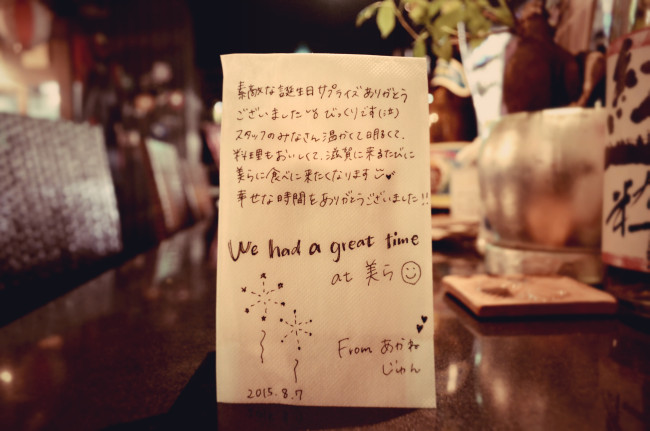 素敵な誕生日サプライズありがとう
ございました!! びっくりです(泣)
スタッフのみなさん温かくて明るくて、
料理もおいしくて、滋賀に来るたびに
美らに食べに来たくなります
幸せな時間をありがとうございました!!
We had a great time
at 美ら
From あかね
じゅん
2015.8.7